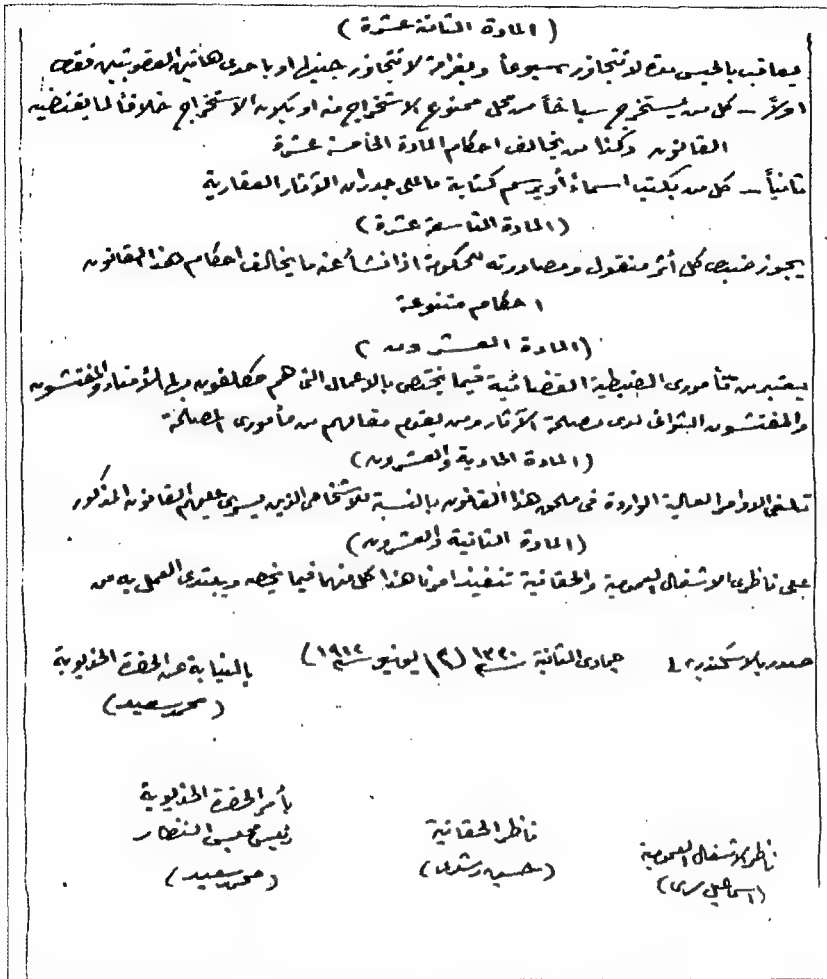 (المادة الثامنة عشرة)
يعاقب بالحبس مدة لا تتجاوز اسبوعاً وبغرامة لا تتجاوز جنيهاً او باحدى هاتين العقوبتين فقط
اولاً – كل من يستخرج سباخاً من محل ممنوع الاستخراج منه او يكون الاستخراج خلافاً لما يقتضيه
القانون وكذا من يخالف احكام المادة الخامسة عشرة
ثانياً – كل من يكتب اسماء أو يرسم كتابة ما على جدران الآثار العقارية
(المادة التاسعة عشرة)
يجوز ضبط كل أثر منقول ومصادرته للحكومة اذا نشأ عنه ما يخالف احكام هذا القانون
احكام متنوعة
(المادة العشرون)
يعتبر من مأمورى الضبطية القضائية فيما يختص بالاعمال التى هم مكلفون بها الأمناء والمفتشون
والمفتشون الثوانى لدى مصلحة الآثار ومن يقوم مقامهم من مأمورى المصلحة
(المادة الحادية والعشرون)
تلغى الاوامر العالية الواردة فى ملحق هذا القانون بالنسبة للاشخاص الذين يسرى عليهم القانون المذكور
(المادة الثانية والعشرون)
على ناظرى الاشغال العمومية والحقانية تنفيذ امرنا هذا كل منهما فيما يخصه ويبتدى العمل به من
صدر بالاسكندرية جمادى الثانية سنة ١٣٣٠ (١٢ يونيو سنة ١٩١٢)
بالنيابة عن الحضرة الخديوية
(محمد سعيد)
بأمر الحضرة الخديوية
رئيس مجلس النظار
(محمد سعيد)
ناظر الحقانية
(حسين رشدى)
ناظر الاشغال العمومية
(اسماعيل سرى)